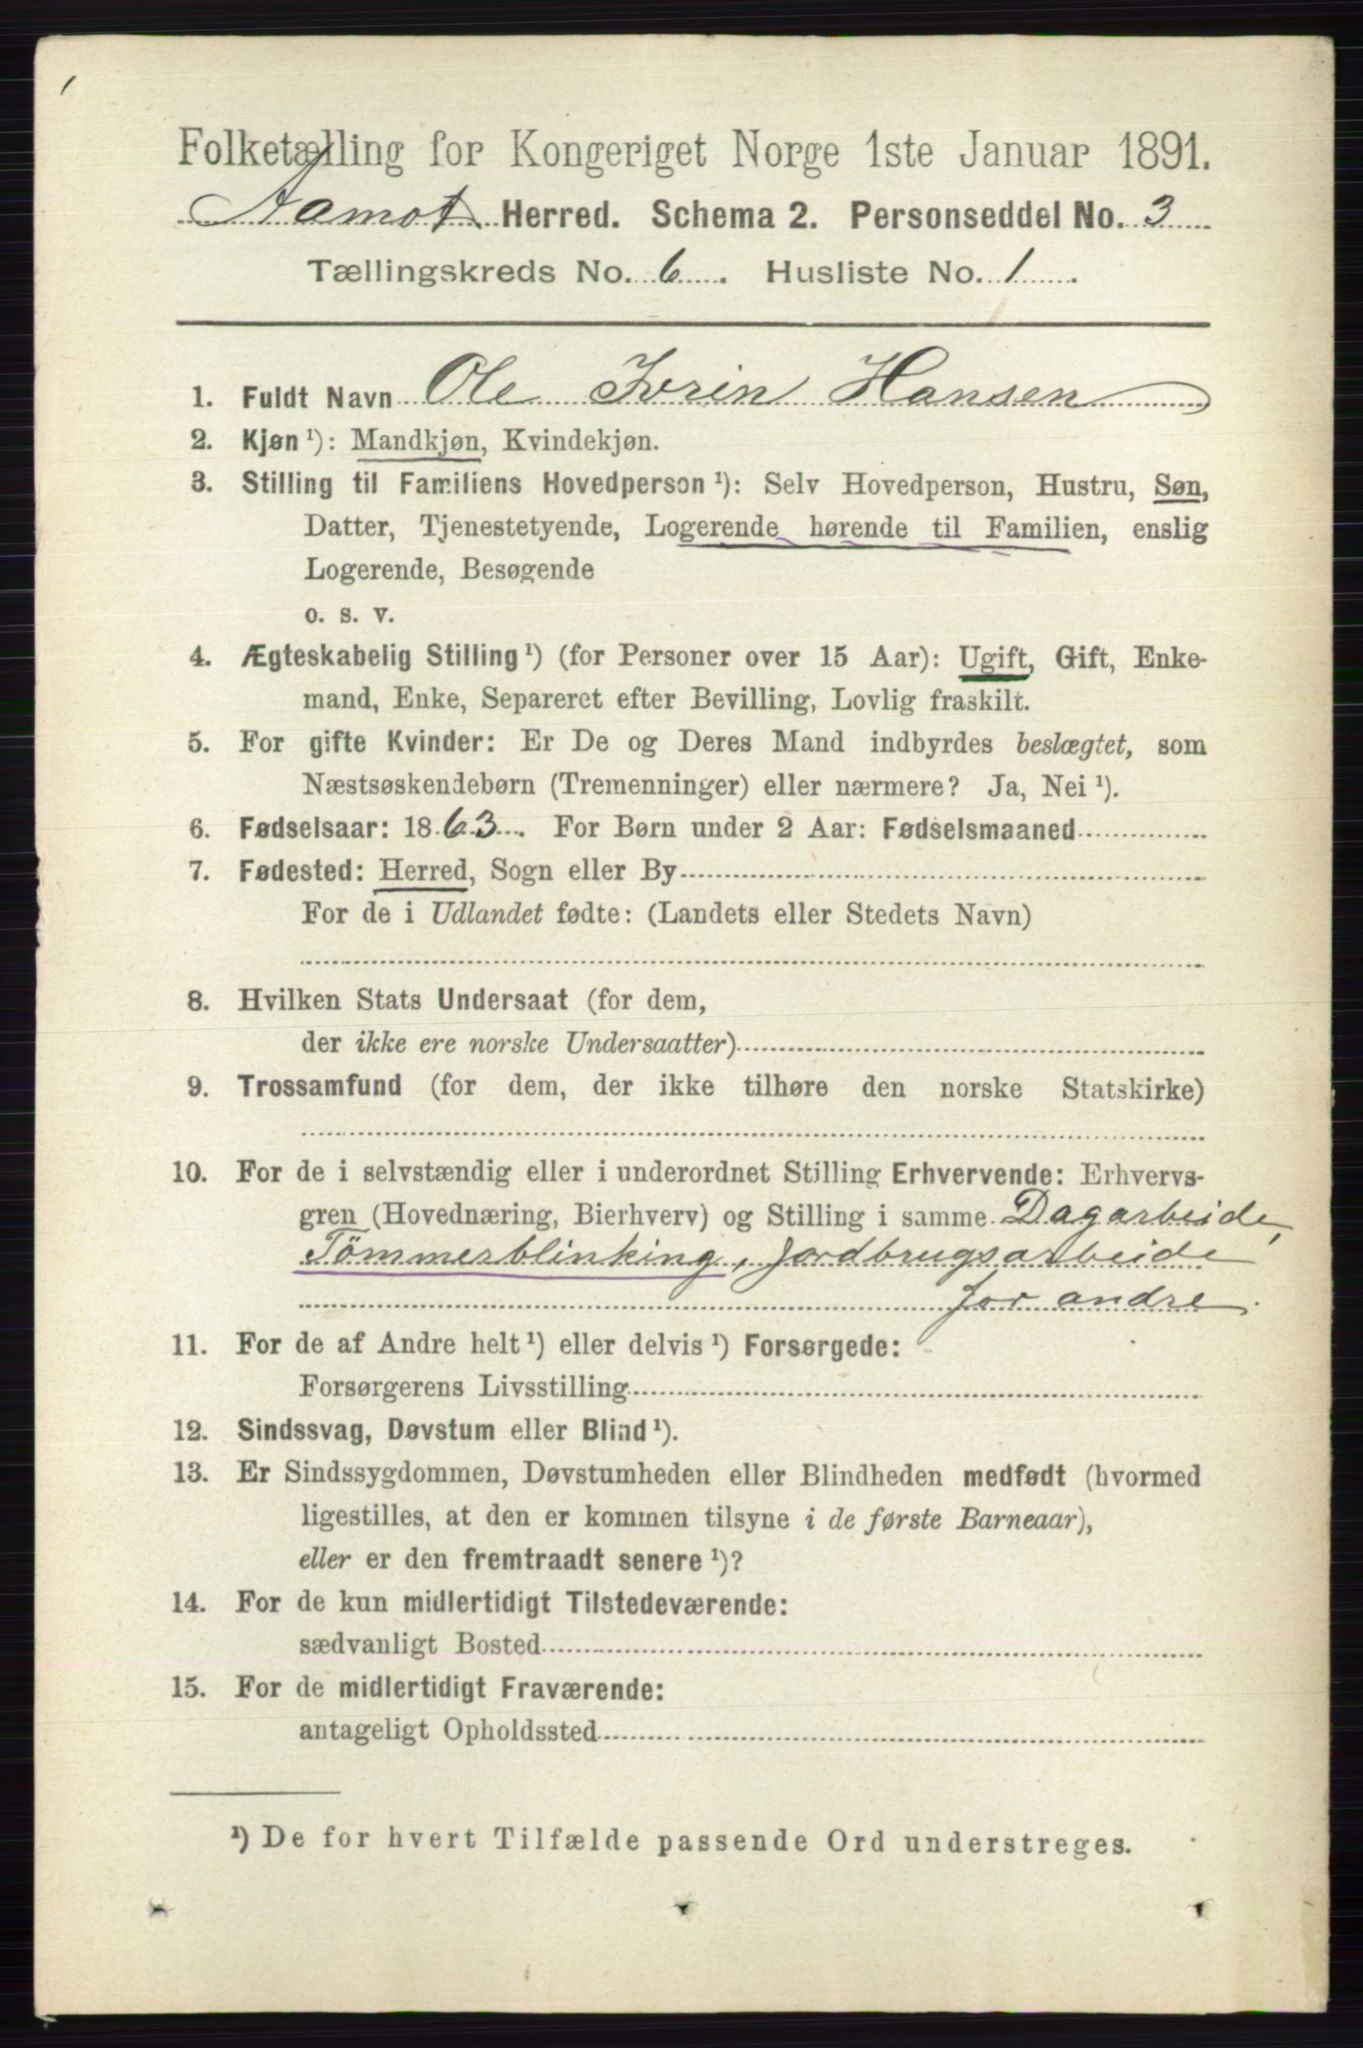 Folketælling for Kongeriget Norge 1ste Januar 1891.
Aamot Herred. Schema 2. Personseddel No. 3
Tællingskreds No. 6. Husliste No. 1.
1. Fuldt Navn Ole Iverin Hansen
2. Kjøn ¹): Mandkjøn, Kvindekjøn.
3. Stilling til Familiens Hovedperson ¹): Selv Hovedperson, Hustru, Søn,
Datter, Tjenestetyende, Logerende hørende til Familien, enslig
Logerende, Besøgende
o. s. v.
4. Ægteskabelig Stilling ¹) (for Personer over 15 Aar): Ugift, Gift, Enke-
mand, Enke, Separeret efter Bevilling, Lovlig fraskilt.
5. For gifte Kvinder: Er De og Deres Mand indbyrdes beslægtet, som
Næstsøskendebørn (Tremenninger) eller nærmere? Ja, Nei ¹).
6. Fødselsaar: 1863. For Børn under 2 Aar: Fødselsmaaned
7. Fødested: Herred, Sogn eller By
For de i Udlandet fødte: (Landets eller Stedets Navn)
8. Hvilken Stats Undersaat (for dem,
der ikke ere norske Undersaatter)
9. Trossamfund (for dem, der ikke tilhøre den norske Statskirke)
10. For de i selvstændig eller i underordnet Stilling Erhvervende: Erhvervs-
gren (Hovednæring, Bierhverv) og Stilling i samme Dagarbeide,
Tömmerblinking, jordbrugsarbeide
for andre.
11. For de af Andre helt ¹) eller delvis ¹) Forsørgede:
Forsørgerens Livsstilling
12. Sindssvag, Døvstum eller Blind ¹).
13. Er Sindssygdommen, Døvstumheden eller Blindheden medfødt (hvormed
ligestilles, at den er kommen tilsyne i de første Barneaar),
eller er den fremtraadt senere ¹)?
14. For de kun midlertidigt Tilstedeværende:
sædvanligt Bosted
15. For de midlertidigt Fraværende:
antageligt Opholdssted
¹) De for hvert Tilfælde passende Ord understreges.